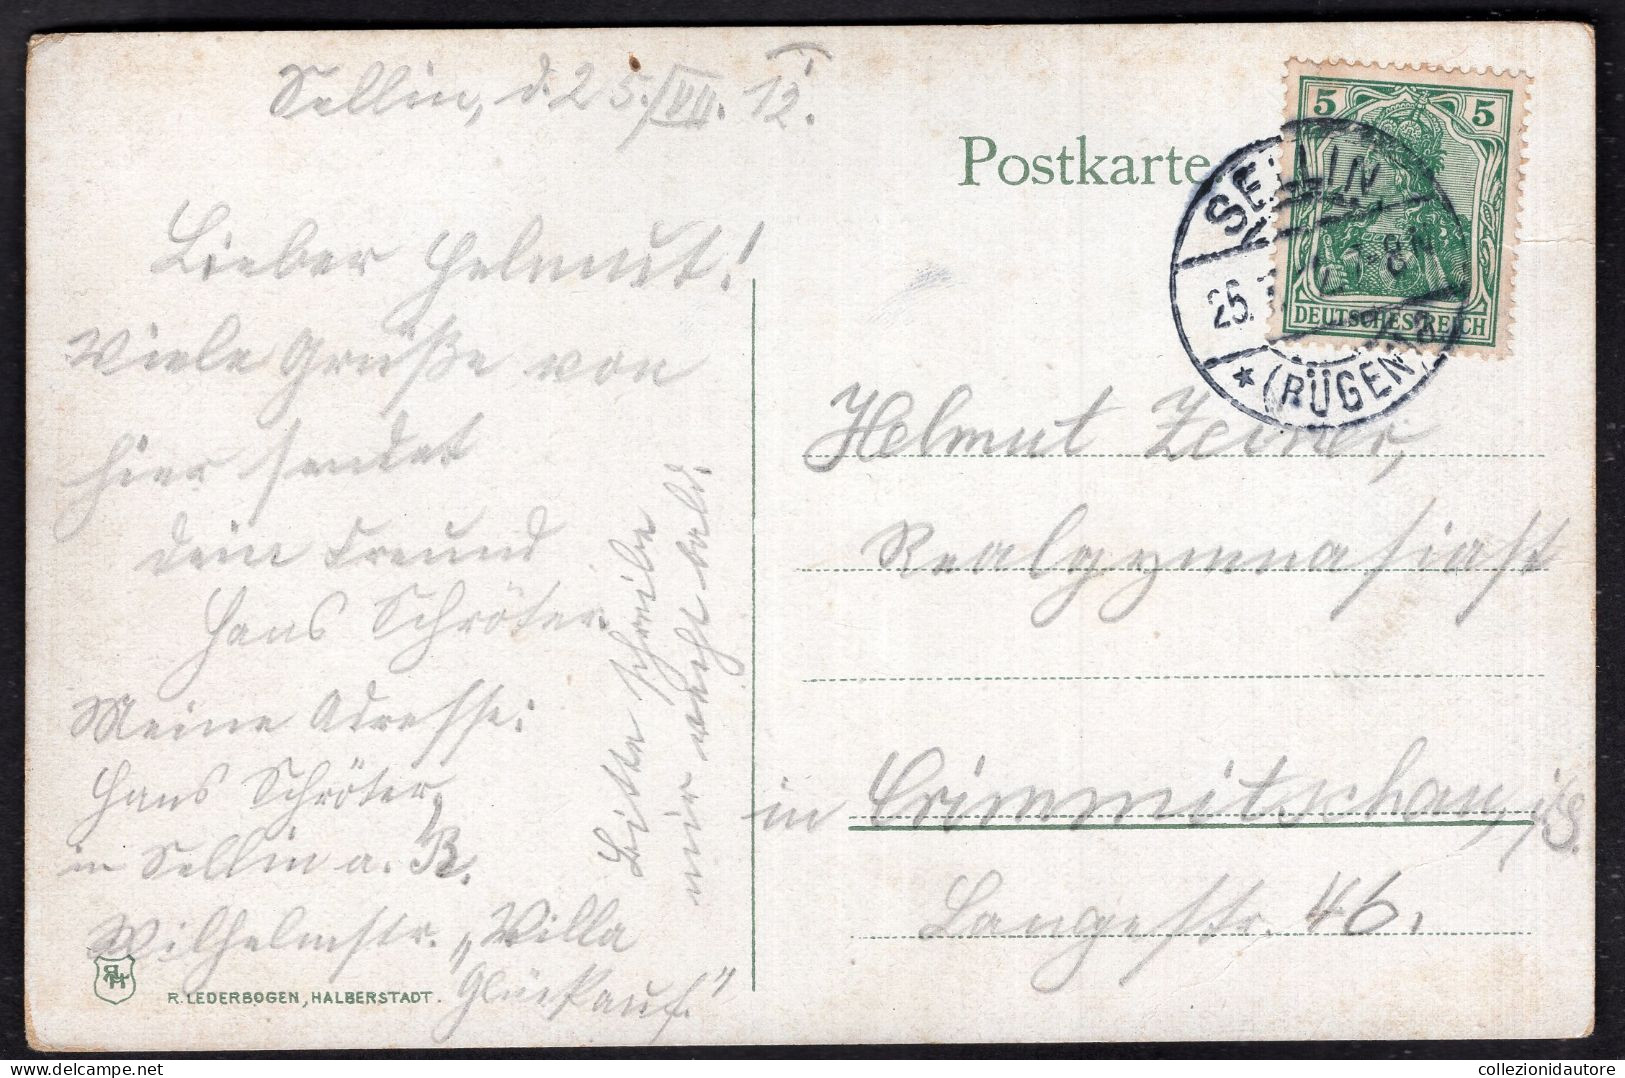 Sellin, d. 25./VII. 12.
Lieber Helmut!
Viele Grüße von
hier sendet
dein Freund
Hans Schröter.
Meine Adresse:
Hans Schröter,
in Sellin a. R.
Wilhelmstr. „Villa
Glückauf."
Bitte schreibe
mir recht bald.
R. LEDERBOGEN, HALBERSTADT.
Postkarte
5 5
DEUTSCHES REICH
SELLIN
25. 7-8N
* (RÜGEN)
Helmut Zeiner,
Realgymnasiast
in Crimmitschau, i/S.
Langestr. 46.
collezionidautore